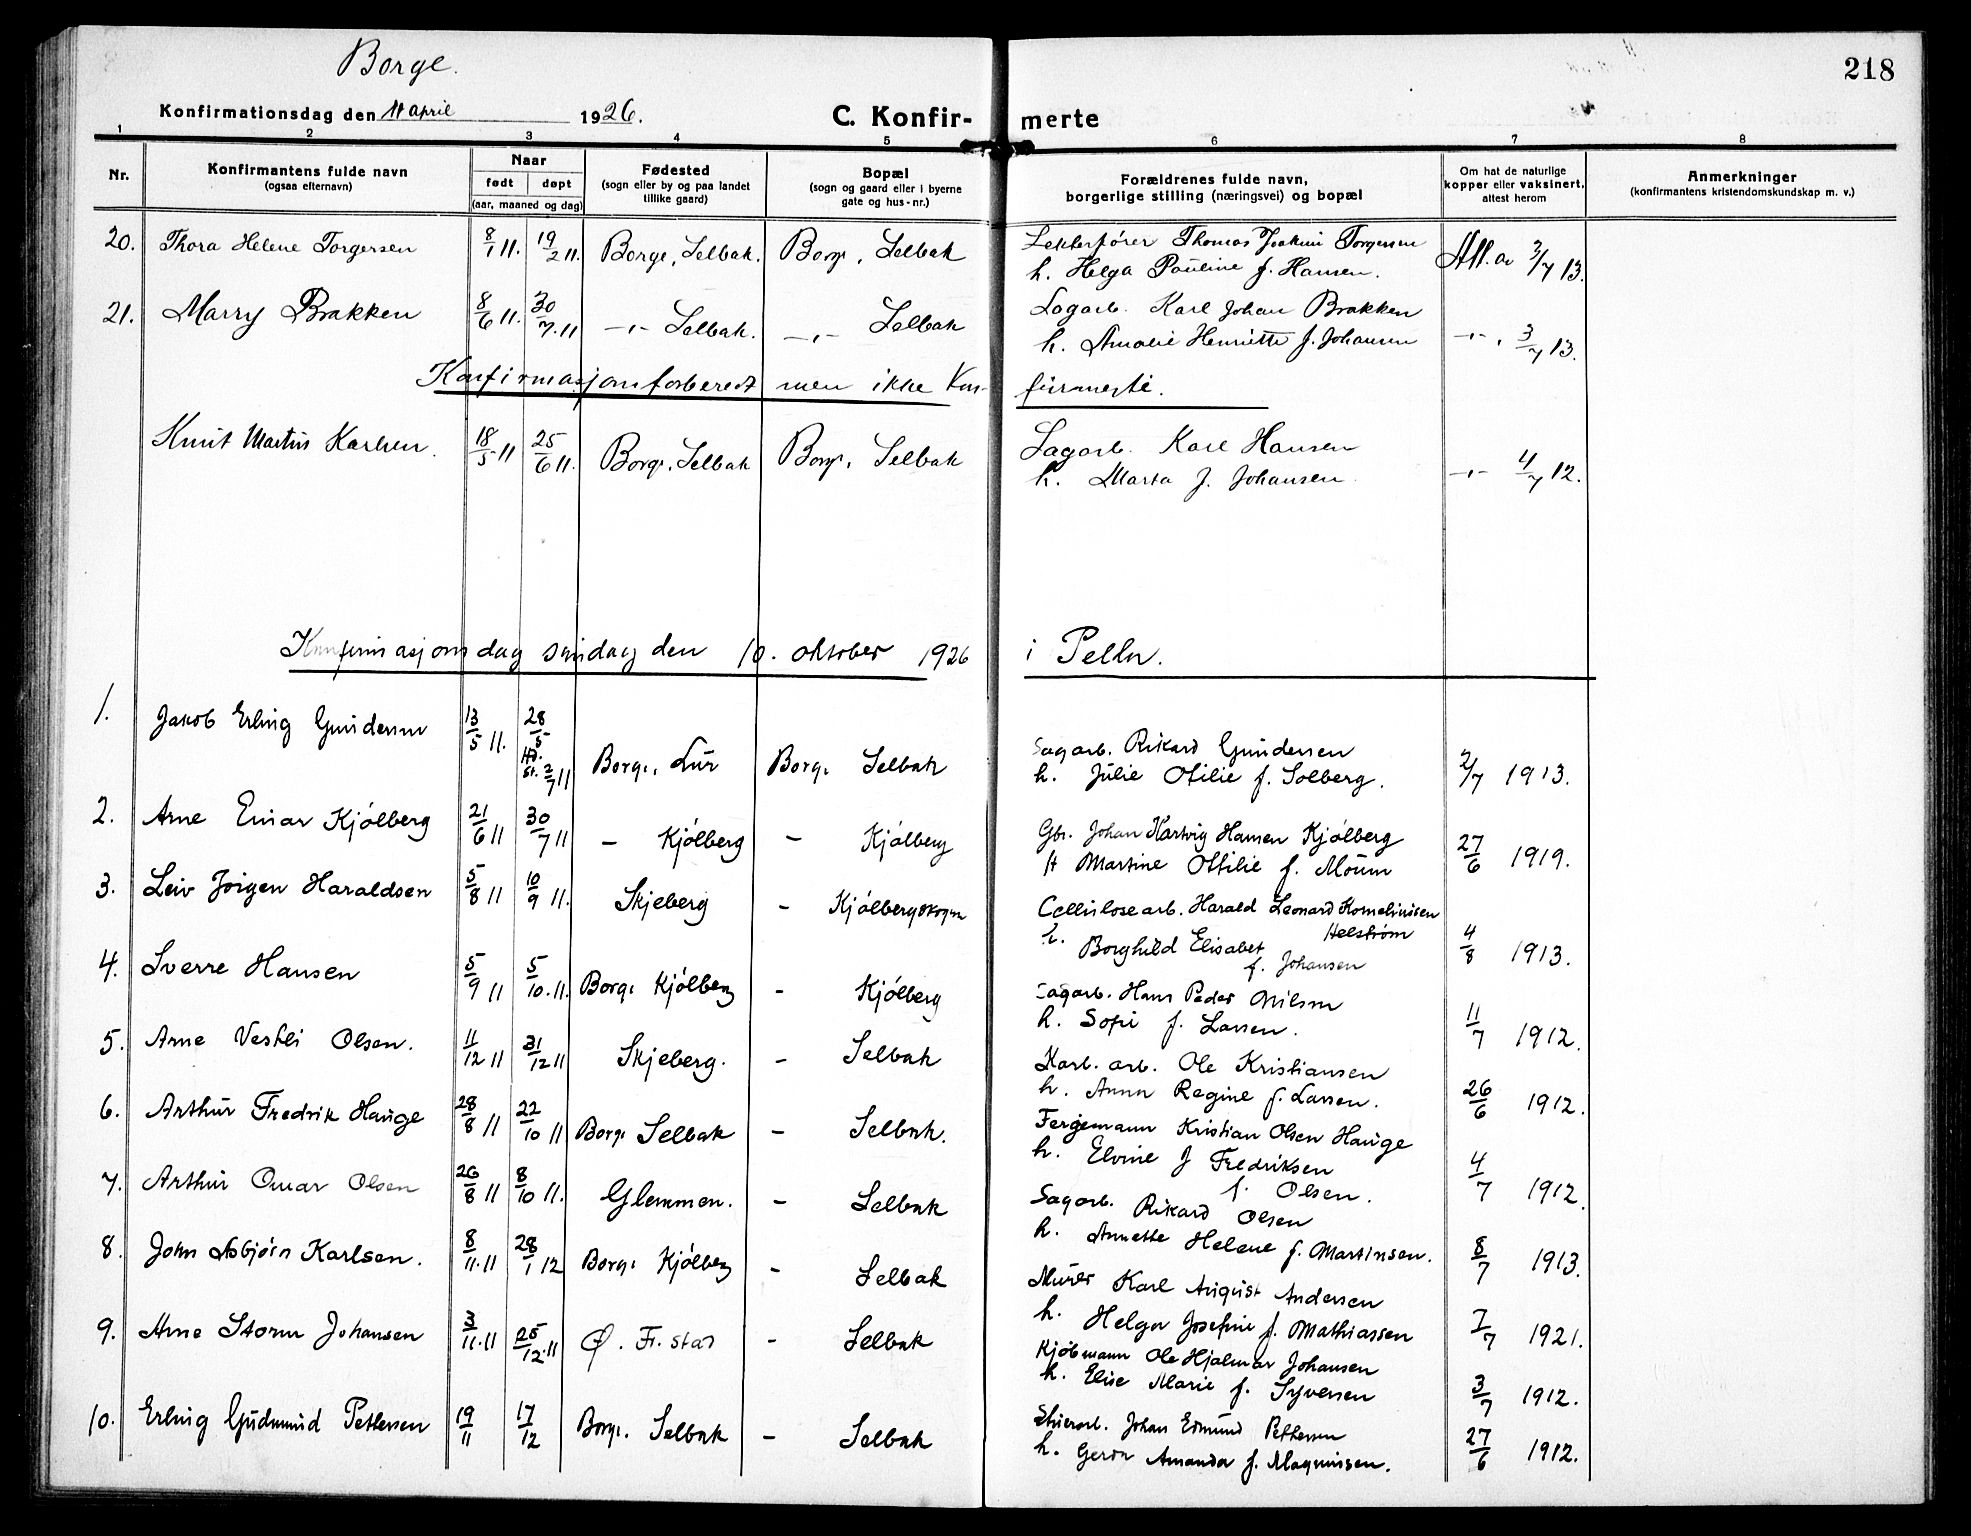 Borge.
218
Konfirmationsdag den 11 april 1926.
C. Konfir- merte
1 2 3 4 5 6 7 8
Nr.
Konfirmantens fulde navn
(ogsaa efternavn)
Naar
født døpt
(aar, maaned og dag)
Fødested
(sogn eller by og paa landet
tillike gaard)
Bopæl
(sogn og gaard eller i byerne
gate og hus-nr.)
Forældrenes fulde navn,
borgerlige stilling (næringsvei) og bopæl
Om hat de naturlige
kopper eller vaksinert,
attest herom
Anmerkninger
(konfirmantens kristendomskundskap m. v.)
20. Thora Helene Torgersen 8/1 11. 19/2 11. Borge, Selbak. Borge, Selbak Lekterfører Thomas Joakim Torgersen
h. Helga Pauline f. Hansen. Att. av 3/7 13.
21. Marry Brakken 8/6 11. 30/7. 11 -"- Selbak. -"- Selbak Sagarb. Karl Johan Brakken
h. Amalie Henriette f. Johansen -"- 3/7 13.
Konfirmasjonsforberedt men ikke Kon- firmerte.
Knut Martius Karlsen. 18/5 11 25/6 11. Borge, Selbak Borge, Selbak Sagarb. Karl Hansen
h. Marta f. Johansen -"- 4/7 12.
Konfirmasjonsdag søndag den 10. oktober 1926 i Pella.
1. Jakob Erling Gundersen 13/5 11. 28/5 HD.
st. 2/7 11 Borge, Lur Borge Selbak Sagarb. Rikard Gundersen
h. Julie Otilie f. Solberg. 2/7 1913.
2. Arne Einar Kjølberg 21/6 11 30/7 11 - Kjølberg - Kjølberg Gbr. Johan Hartvig Hansen Kjølberg
H Martine Otilie f. Moum 27/6 1919.
3. Leiv Jørgen Haraldsen 5/8 11 10/9 11. Skjeberg - Kjølbergskogen Cellulosearb. Harald Leonard Korneliussen
Helstrøm
h. Borghild Elisabet
f. Johansen 4/8 1913.
4. Sverre Hansen 5/9 11 5/10. 11. Borge Kjølberg - Kjølberg Sagarb. Hans Peder Nilsen
h. Sofie f. Larsen. 11/7 1912.
5. Arne Vestli Olsen. 11/12 11 31/12 11 Skjeberg. - Selbak Karb. arb. Ole Kristiansen
h. Anna Regine f. Larsen. 26/6 1912.
6. Arthur Fredrik Hauge 28/8 11 22/10 11 Borge Selbak - Selbak. Fergemann Kristian Olsen Hauge
h. Elvine f Fredriksen
f. Olsen. 4/7 1912.
7. Arthur Omar Olsen 26/8 11 8/10 11. Glemmen. - Selbak Sagarb. Rikard Olsen
h. Annette Helene f. Martinsen. 8/7 1913.
8. John Asbjørn Karlsen. 8/11. 11 28/1 12 Borge Kjølberg - Selbak Murer Karl August Andersen
h. Helga Josefine f. Mathiassen 7/7 1921.
9. Arne Storm Johansen 3/11. 11 25/12. 11 Ø. Fr. stad - Selbak Kjøbmann Ole Hjalmar Johansen
h. Elise Marie f. Syversen 3/7 1912.
10. Erling Gudmund Pettersen 19/11 17/12 Borge. Selbak - Selbak Sliperarb. Johan Edmund Pettersen
h. Gerda Amanda f. Magnussen. 27/6 1912.